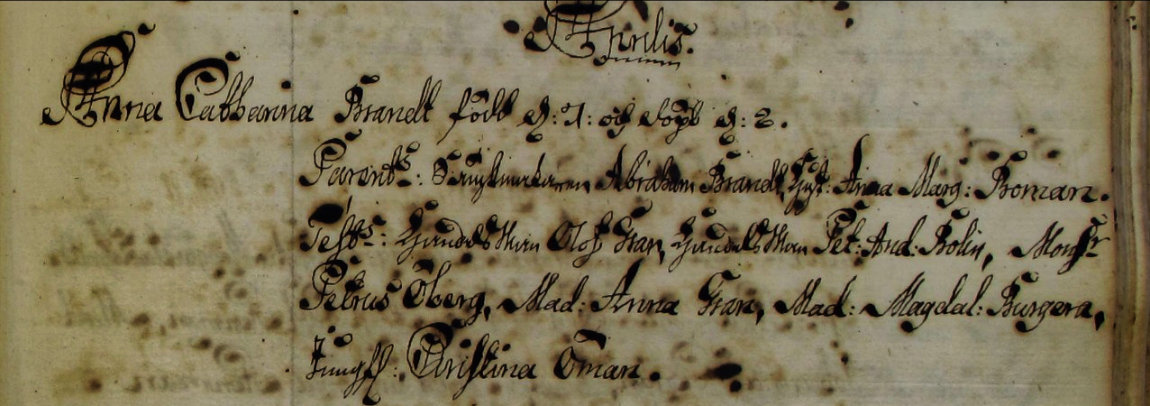 Aprilis.
Anna Catharina Brandt född d: 1: och döpt d: 2.
Parent:s: Abraham Brandt, Hust: Anna Marg: Boman.
Test:s: Handelsman Olof Gran, Handelsman Pet: And: Bolin, Mons:r
Petrus Öberg, Mad: Anna Gran, Mad: Magdal: Burgera,
Jungf: Christina Öman.